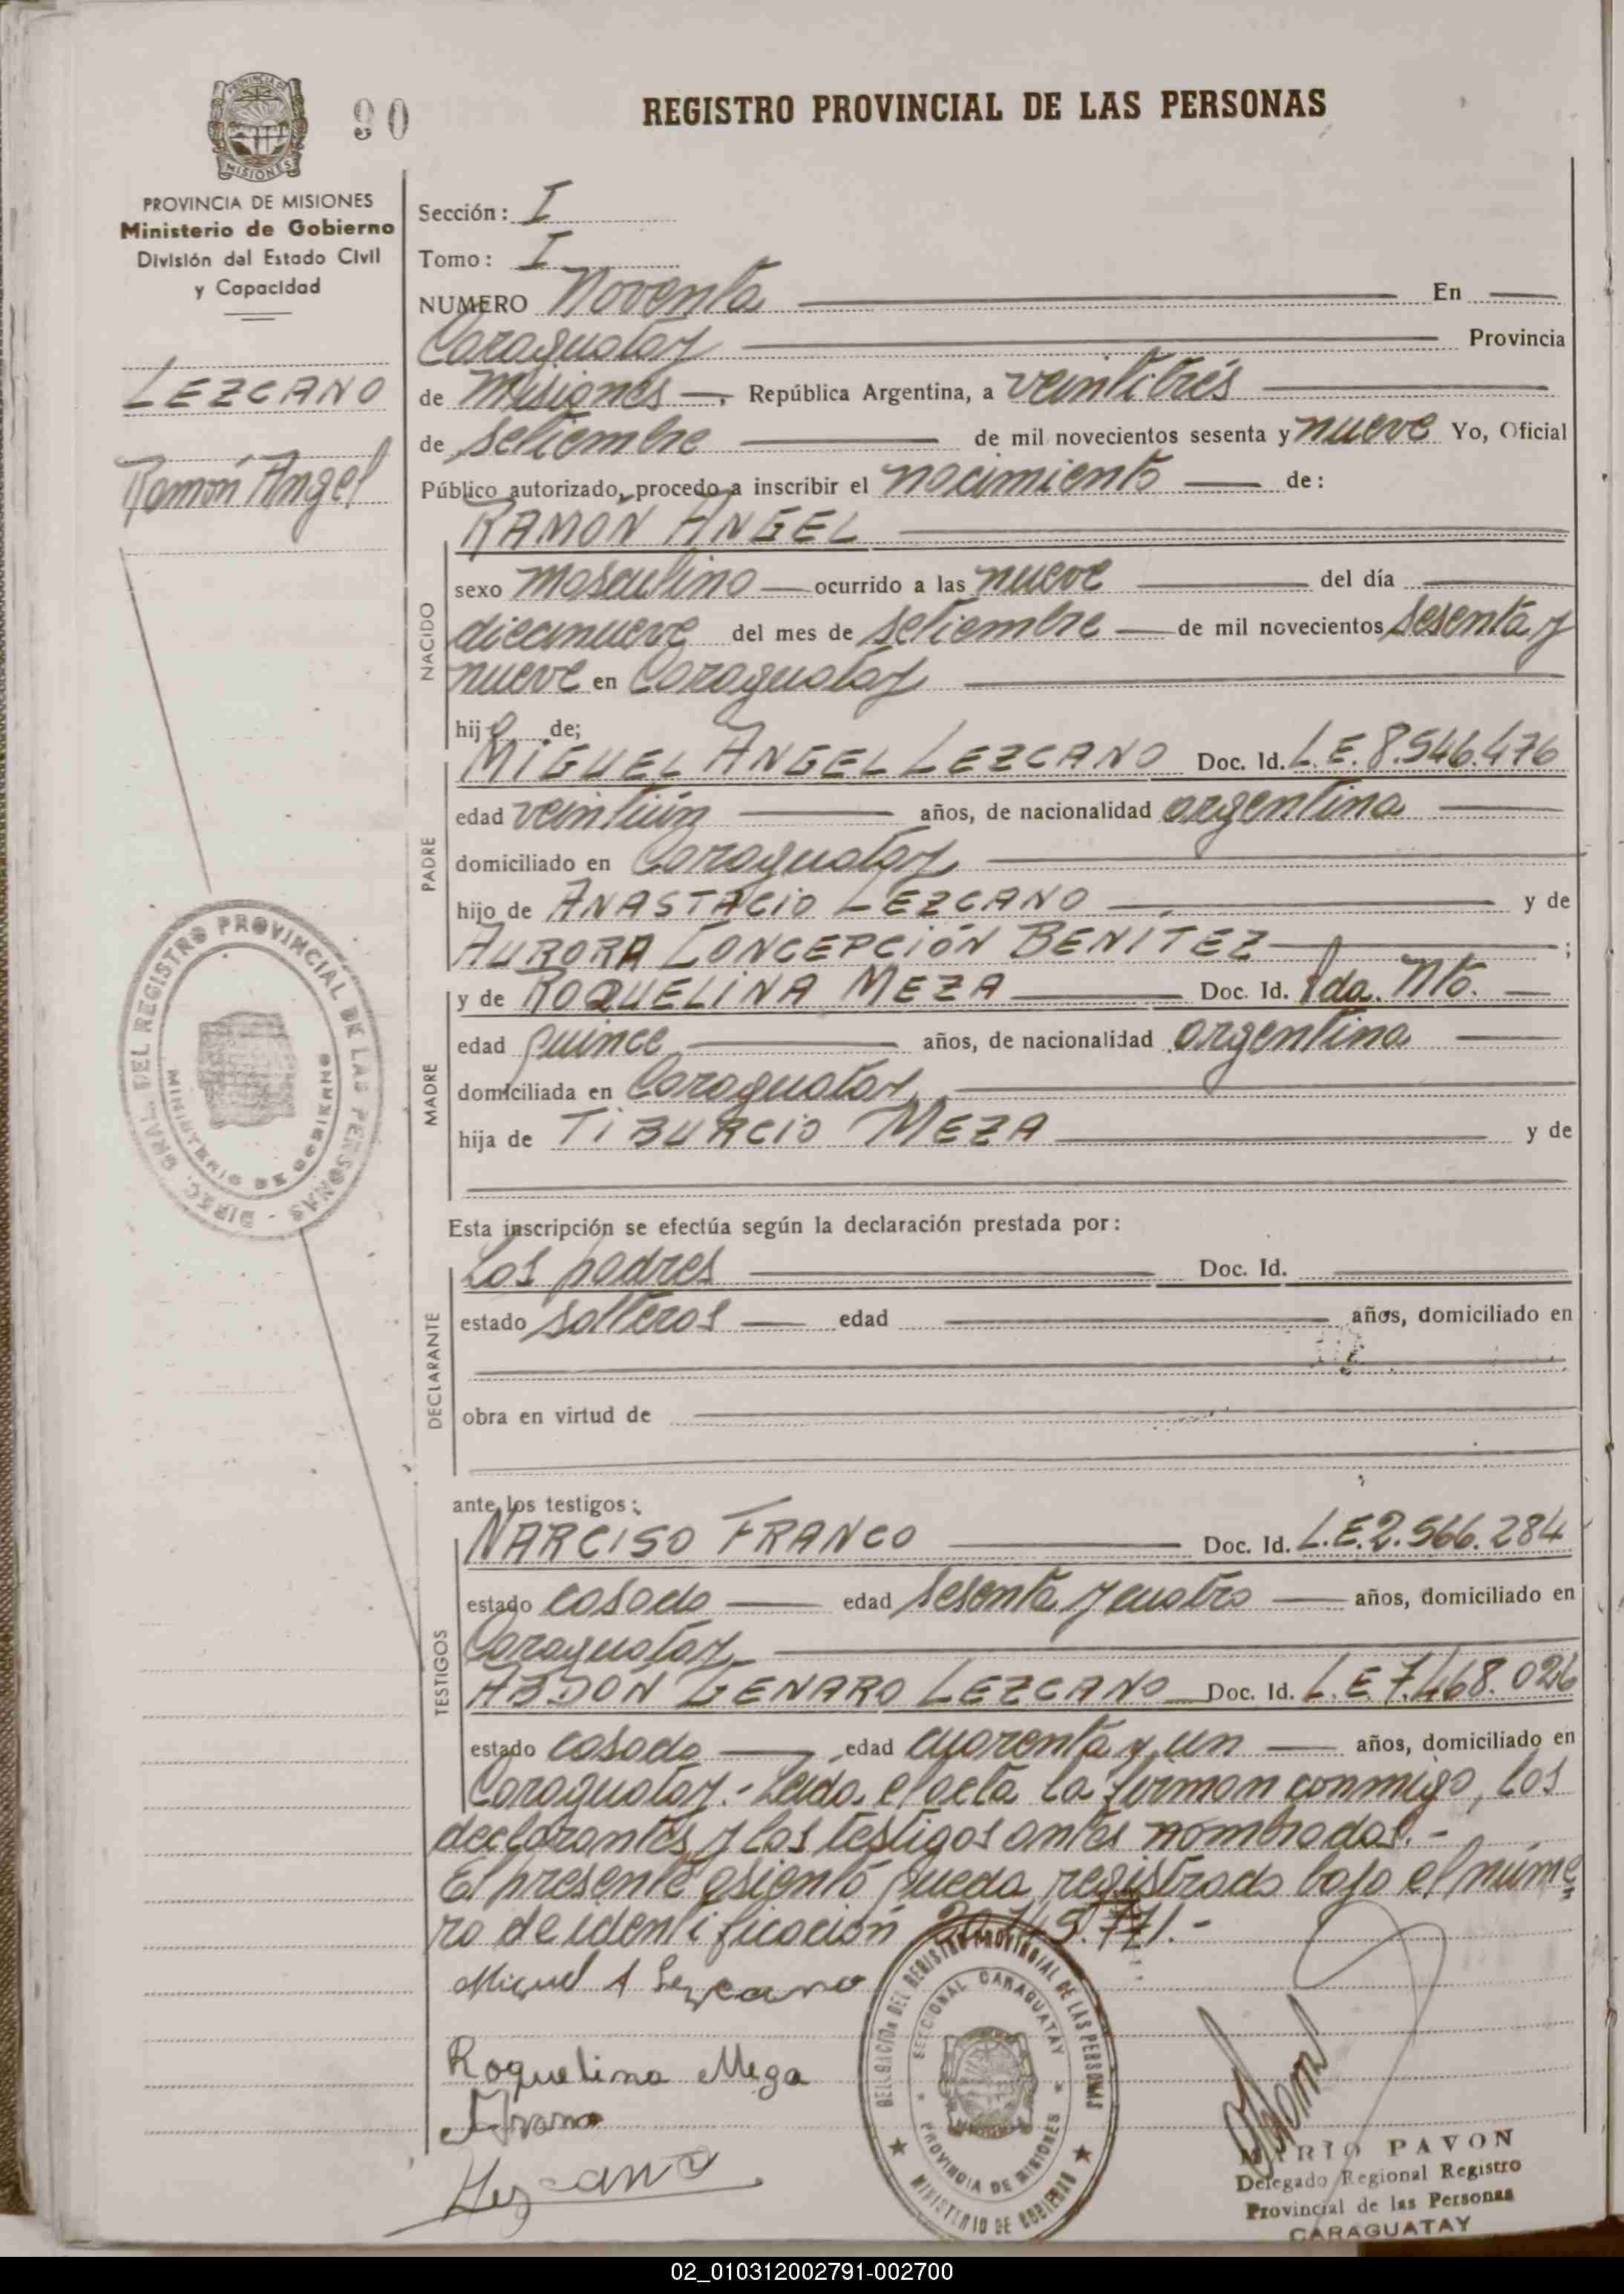 90
REGISTRO PROVINCIAL DE LAS PERSONAS
PROVINCIA DE MISIONES
Ministerio de Gobierno
División del Estado Civil
y Capacidad
LEZCANO
Ramón Angel
Sección: I
Tomo: I
NUMERO Noventa En
Caraguatay Provincia
de Misiones, República Argentina, a veintitrés
de setiembre de mil novecientos sesenta y nueve Yo, Oficial
Público autorizado, procedo a inscribir el nacimiento de:
RAMÓN ANGEL
NACIDO
sexo masculino ocurrido a las nueve del día
diecinueve del mes de setiembre de mil novecientos sesenta y
nueve en Caraguatay
hijo de;
PADRE
MIGUEL ANGEL LEZCANO Doc. Id. L.E. 8.546.476
edad veintiún años, de nacionalidad argentina
domiciliado en Caraguatay
hijo de ANASTACIO LEZCANO y de
AURORA CONCEPCIÓN BENÍTEZ;
MADRE
y de ROQUELINA MEZA Doc. Id. Pda. Nto.
edad quince años, de nacionalidad argentina
domiciliada en Caraguatay
hija de TIBURCIO MEZA y de
Esta inscripción se efectúa según la declaración prestada por:
DECLARANTE
Los padres Doc. Id.
estado solteros edad años, domiciliado en
obra en virtud de
ante los testigos:
TESTIGOS
NARCISO FRANCO Doc. Id. L.E. 2.566.284
estado casado edad sesenta y cuatro años, domiciliado en
Caraguatay
ABDÓN GENARO LEZCANO Doc. Id. L.E. 7.468.026
estado casado edad cuarenta y un años, domiciliado en
Caraguatay.- Leída el acta la firman conmigo, los
declarantes y los testigos antes nombrados.-
El presente asiento queda registrado bajo el núme
ro de identificación 771.-
Miguel A Lezcano
Roquelina Meza
Lezcano
DIREC. GRAL. DEL REGISTRO PROVINCIAL DE LAS PERSONAS
MINISTERIO DE GOBIERNO
DELEGACION DEL REGISTRO PROVINCIAL DE LAS PERSONAS
SECCIONAL CARAGUATAY
PROVINCIA DE MISIONES
MINISTERIO DE GOBIERNO
MARIO PAVON
Delegado Regional Registro
Provincial de las Personas
CARAGUATAY
02_010312002791-002700